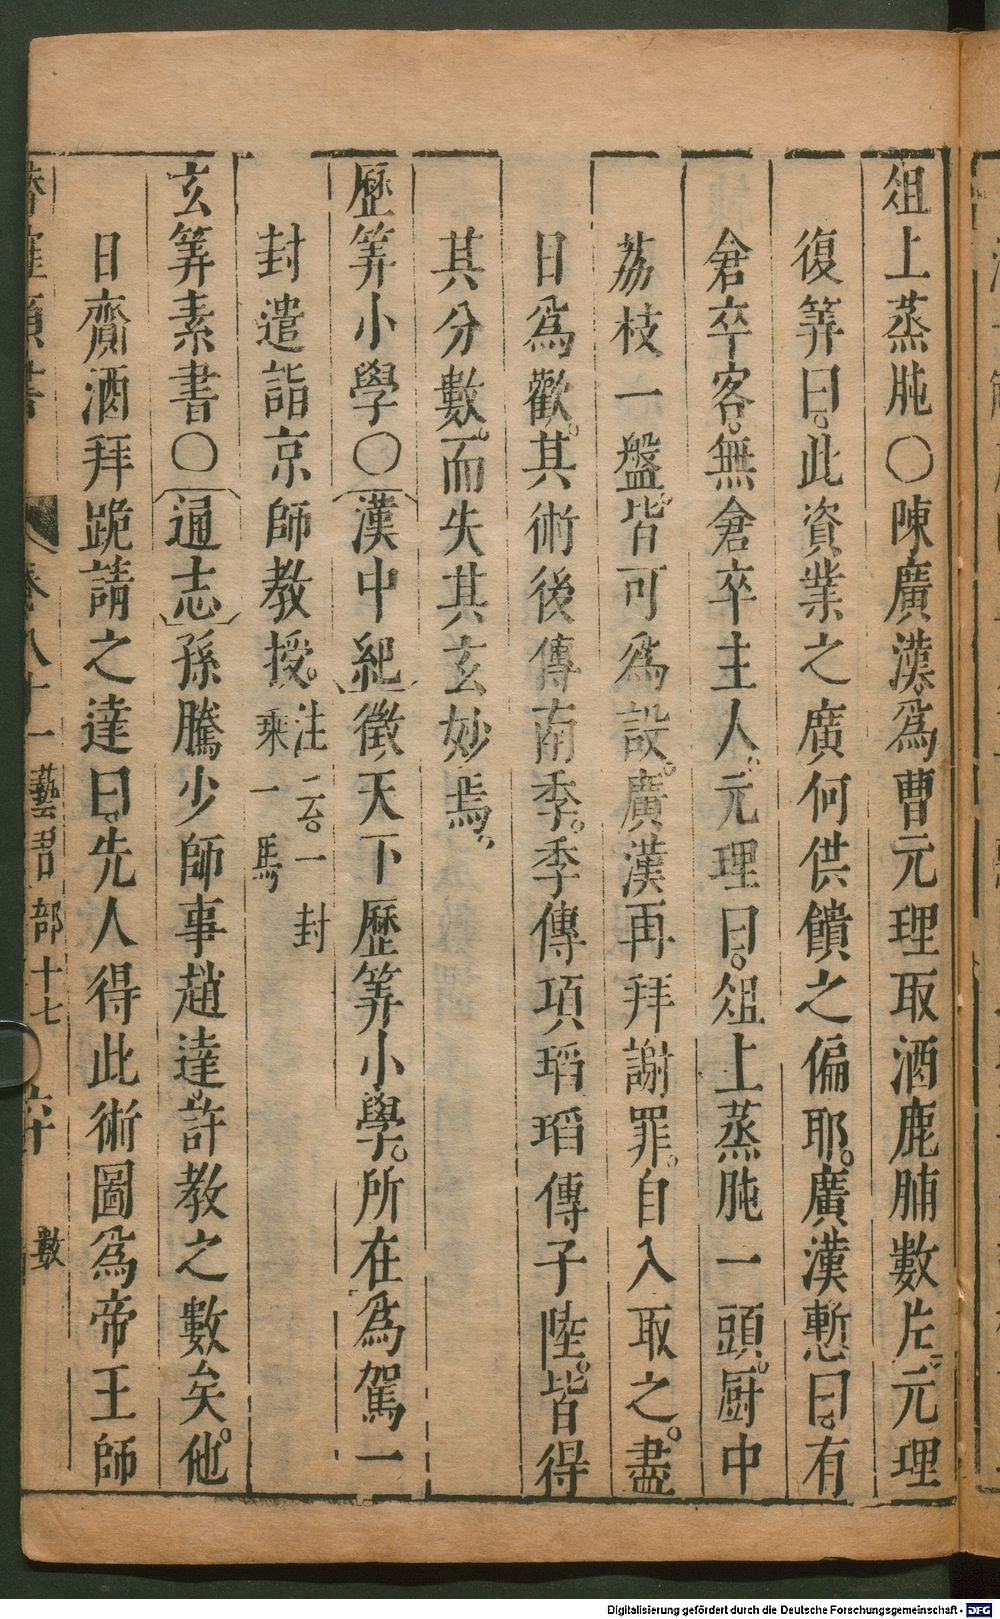 俎上蒸肫○陳廣漢爲曹元理取酒鹿脯數片元理
復筭曰此資業之廣何供饋之偏耶廣漢慙曰有
倉卒客無倉卒主人元理曰俎上蒸肫一頭厨中
荔枝一盤皆可爲設廣漢再拜謝罪自入取之盡
日爲歡其術後傳南季季傳項瑫瑫傳子陸皆得
其分數而失其玄妙焉
歷筭小學○漢中紀徵天下歷筭小學所在爲駕一
封遣詣京師教授注云一封
乘一馬
玄筭素書○通志孫騰少師事趙達許教之數矣他
日齎酒拜跪請之達曰先人得此術圖爲帝王師
卷八十一 藝習部十七 六十 數
Digitalisierung gefördert durch die Deutsche Forschungsgemeinschaft - DFG